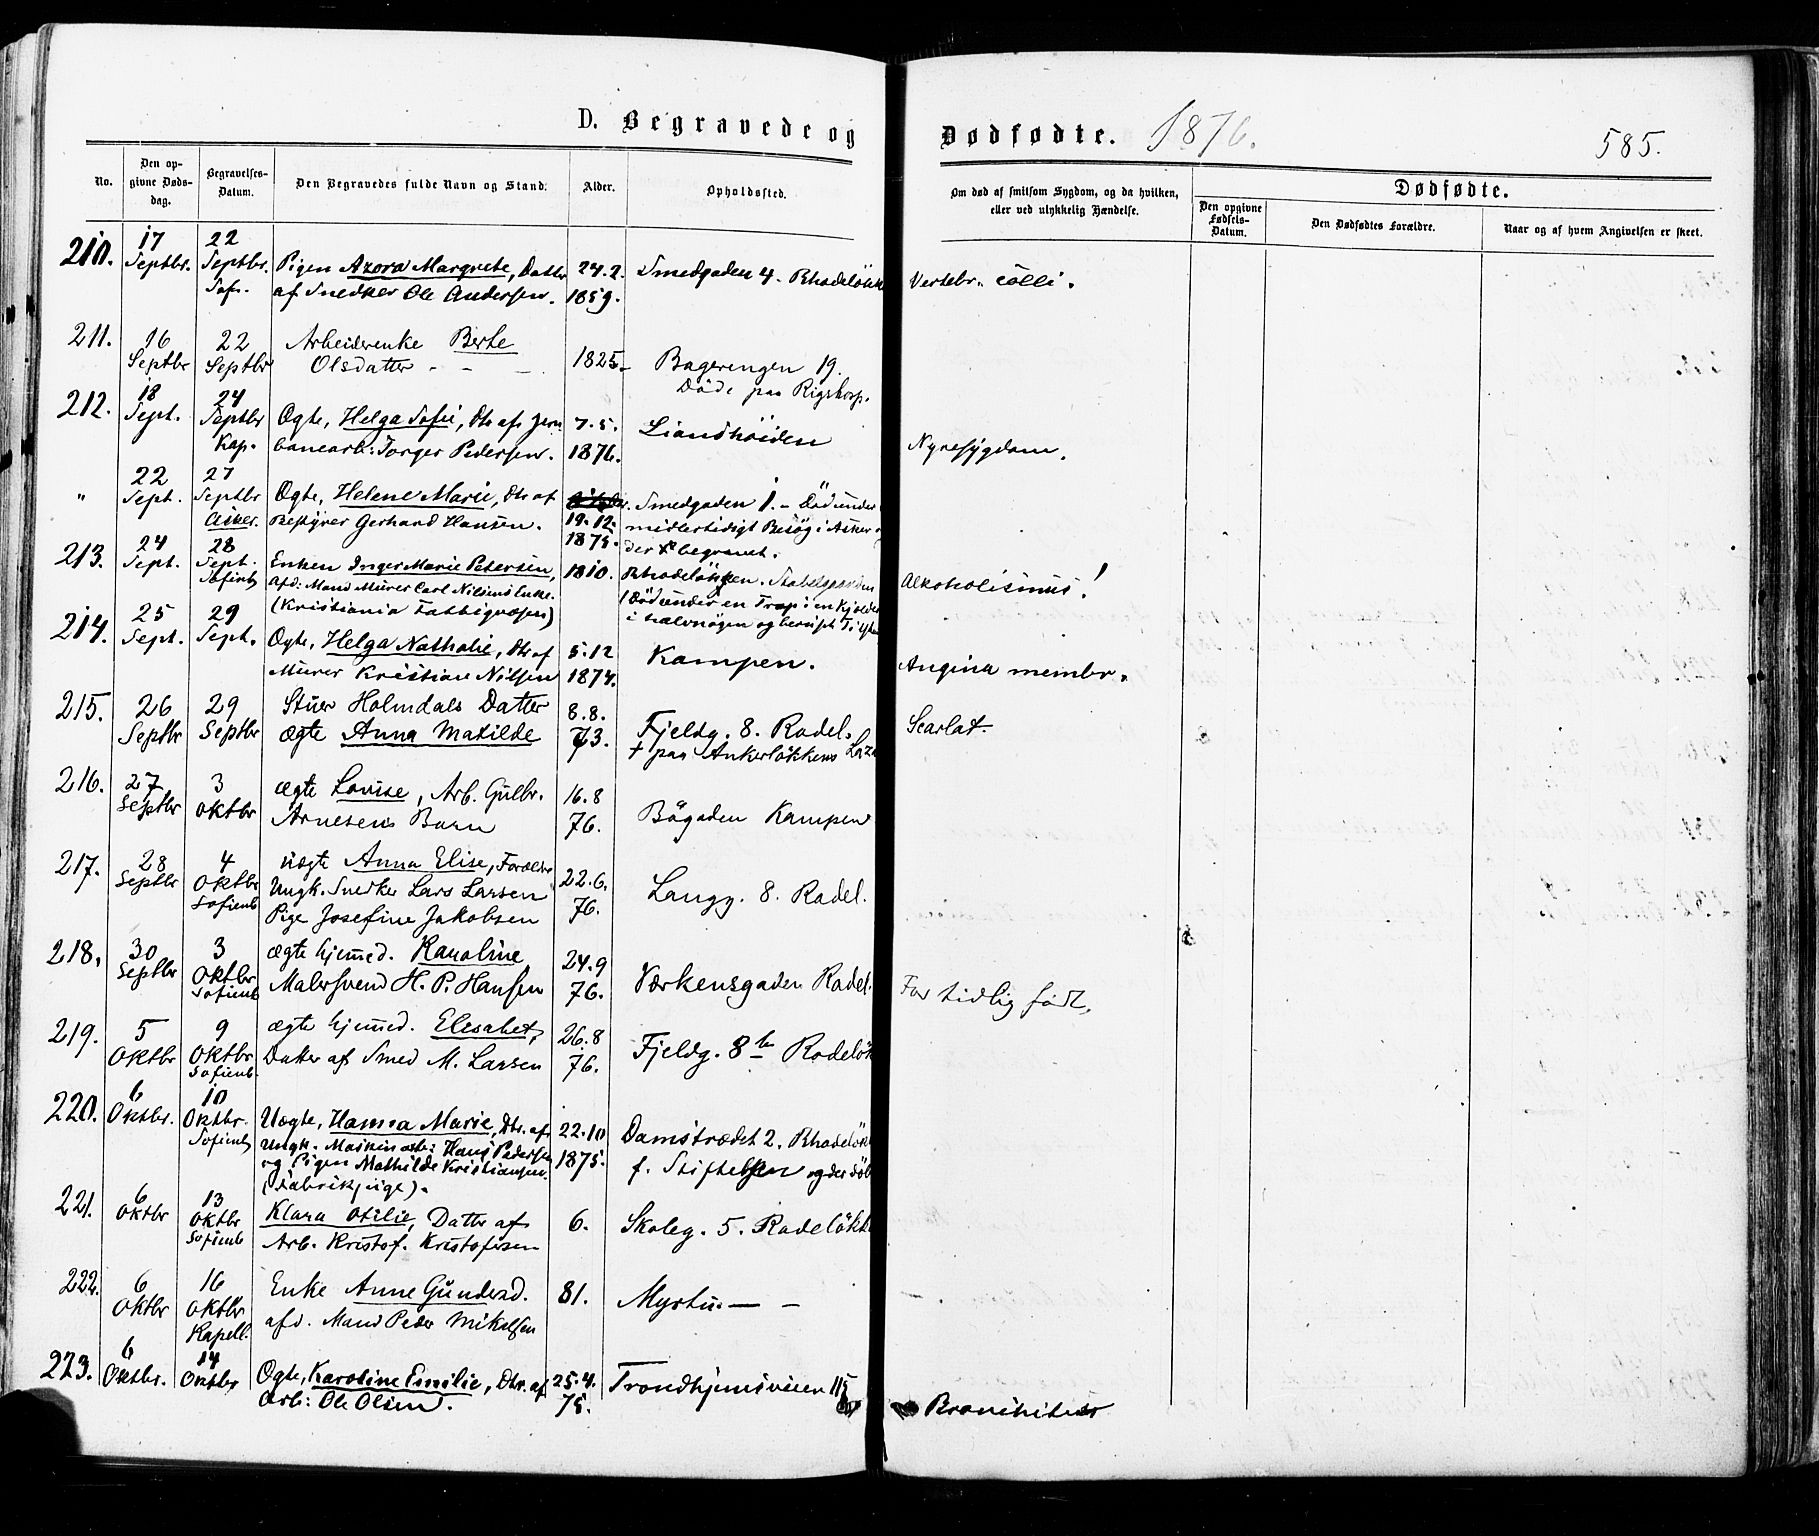 D. Begravede og Dødfødte. 1876. 585.
No.
Den opgivne Døds-dag.
Begravelses-Datum.
Den Begravedes fulde Navn og Stand.
Alder.
Opholdssted.
Om død af smitsom Sygdom, og da hvilken, eller ved ulykkelig Hændelse.
Dødfødte.
Den opgivne Fødsels-Datum.
Den Dødfødtes Forældre.
Naar og af hvem Angivelsen er skeet.
210. 17 Septbr. 22 Septbr. Sof. Pigen Azora Margrete, Datter 24.2. Smedgaden 4. Rhodeløkk Vertebr. colli.
af Snedker Ole Andersen. 1859.
211. 16 Septbr 22 Septbr Arbeiderenke Berte
Olsdatter - - - 1825- Bagerengen 19.
Döde paa Rigshosp.
212. 18 Sept. 24 Septbr Kap. Ægte, Helga Sofie, Dtr af Jern 7.5. Liandhöiden Nyresygdom.
banearb: Torger Pedersen. 1876.
" 22 Sept. 27 Septbr Asker. Ægte, Helene Marie, Dtr af Smedgaden 1. - Död under
Bestyrer Gerhard Hansen. 19.12. midlertidigt Besög i Asker
1875. der begravet.
213. 24 Sept. 28 Sept. Sofienb Enken Inger Marie Petersen, 1810. Rhodelökken. Stabelgaarden Alkoholismus!
afd. Mand Murer Carl Nilsens Enke. (Död under en Trap i en Kjelder
(Kristiania Fattigvæsen) i halvnögen og beruset Tilstan
214. 25 Sept. 29 Sept. Ægte, Helga Nathalie, Dtr af 5.12 Kampen. Angina membr.
Murer Kristian Nilsen 1874.
215. 26 Septbr 29 Septbr Stuer Holmdals Datter 8.8. Fjeldg. 8. Rodel. Scarlat.
ægte Anna Matilde 73. + paa Ankerlökkens Laza
216. 27 Septbr 3 Oktbr ægte Lovise, Arb. Gulbr. 16.8
Arnesens Barn 76. Bögaden Kampen
217. 28 Septbr 4 Oktbr Sofienb uægte Anna Elise, Forældre 22.6.
Ungk. Snedker Lars Larsen 76. Langg. 8. Rodel.
Pige Josefine Jakobsen
218. 30 Septbr 3 Oktbr Sofienb ægte hjemmed. Karoline 24.9
Malersvend H. P. Hansen 76. Værkensgaden Rodel. For tidlig födt.
219. 5 Oktbr 9 Oktbr Sofienb. ægte hjemmed. Elisabet, 26.8
Datter af Smed M. Larsen 76. Fjeldg. 8 b Rodelök
220. 6 Oktbr. 10 Oktbr. Sofienb Uægte, Hanna Marie, Dtr. af 22.10 Damstrædet 2. Rhodelök
Ungk. Maskinarb: Hans Pedersen 1875. f. Stiftelsen og der döb
og Pigen Mathilde Kristiansen.
(Fabrikpige).
221. 6 Oktbr 13 Oktbr Sofienb Klara Otilie, Datter af 6. Skoleg. 5. Rodelökk
Arb. Kristof. Kristofersen
222. 6 Oktbr 16 Oktbr Kapell. Enke Anne Gundersd. 81. Myrtu. - -
afd. Mand Peder Mikelsen
223. 6 Oktbr. 14 Oktbr. Ægte, Karoline Emilie, Dtr. af 25.4. Trondhjemsveien 115
Arb: Ole Olsen. 75. Bronchitis